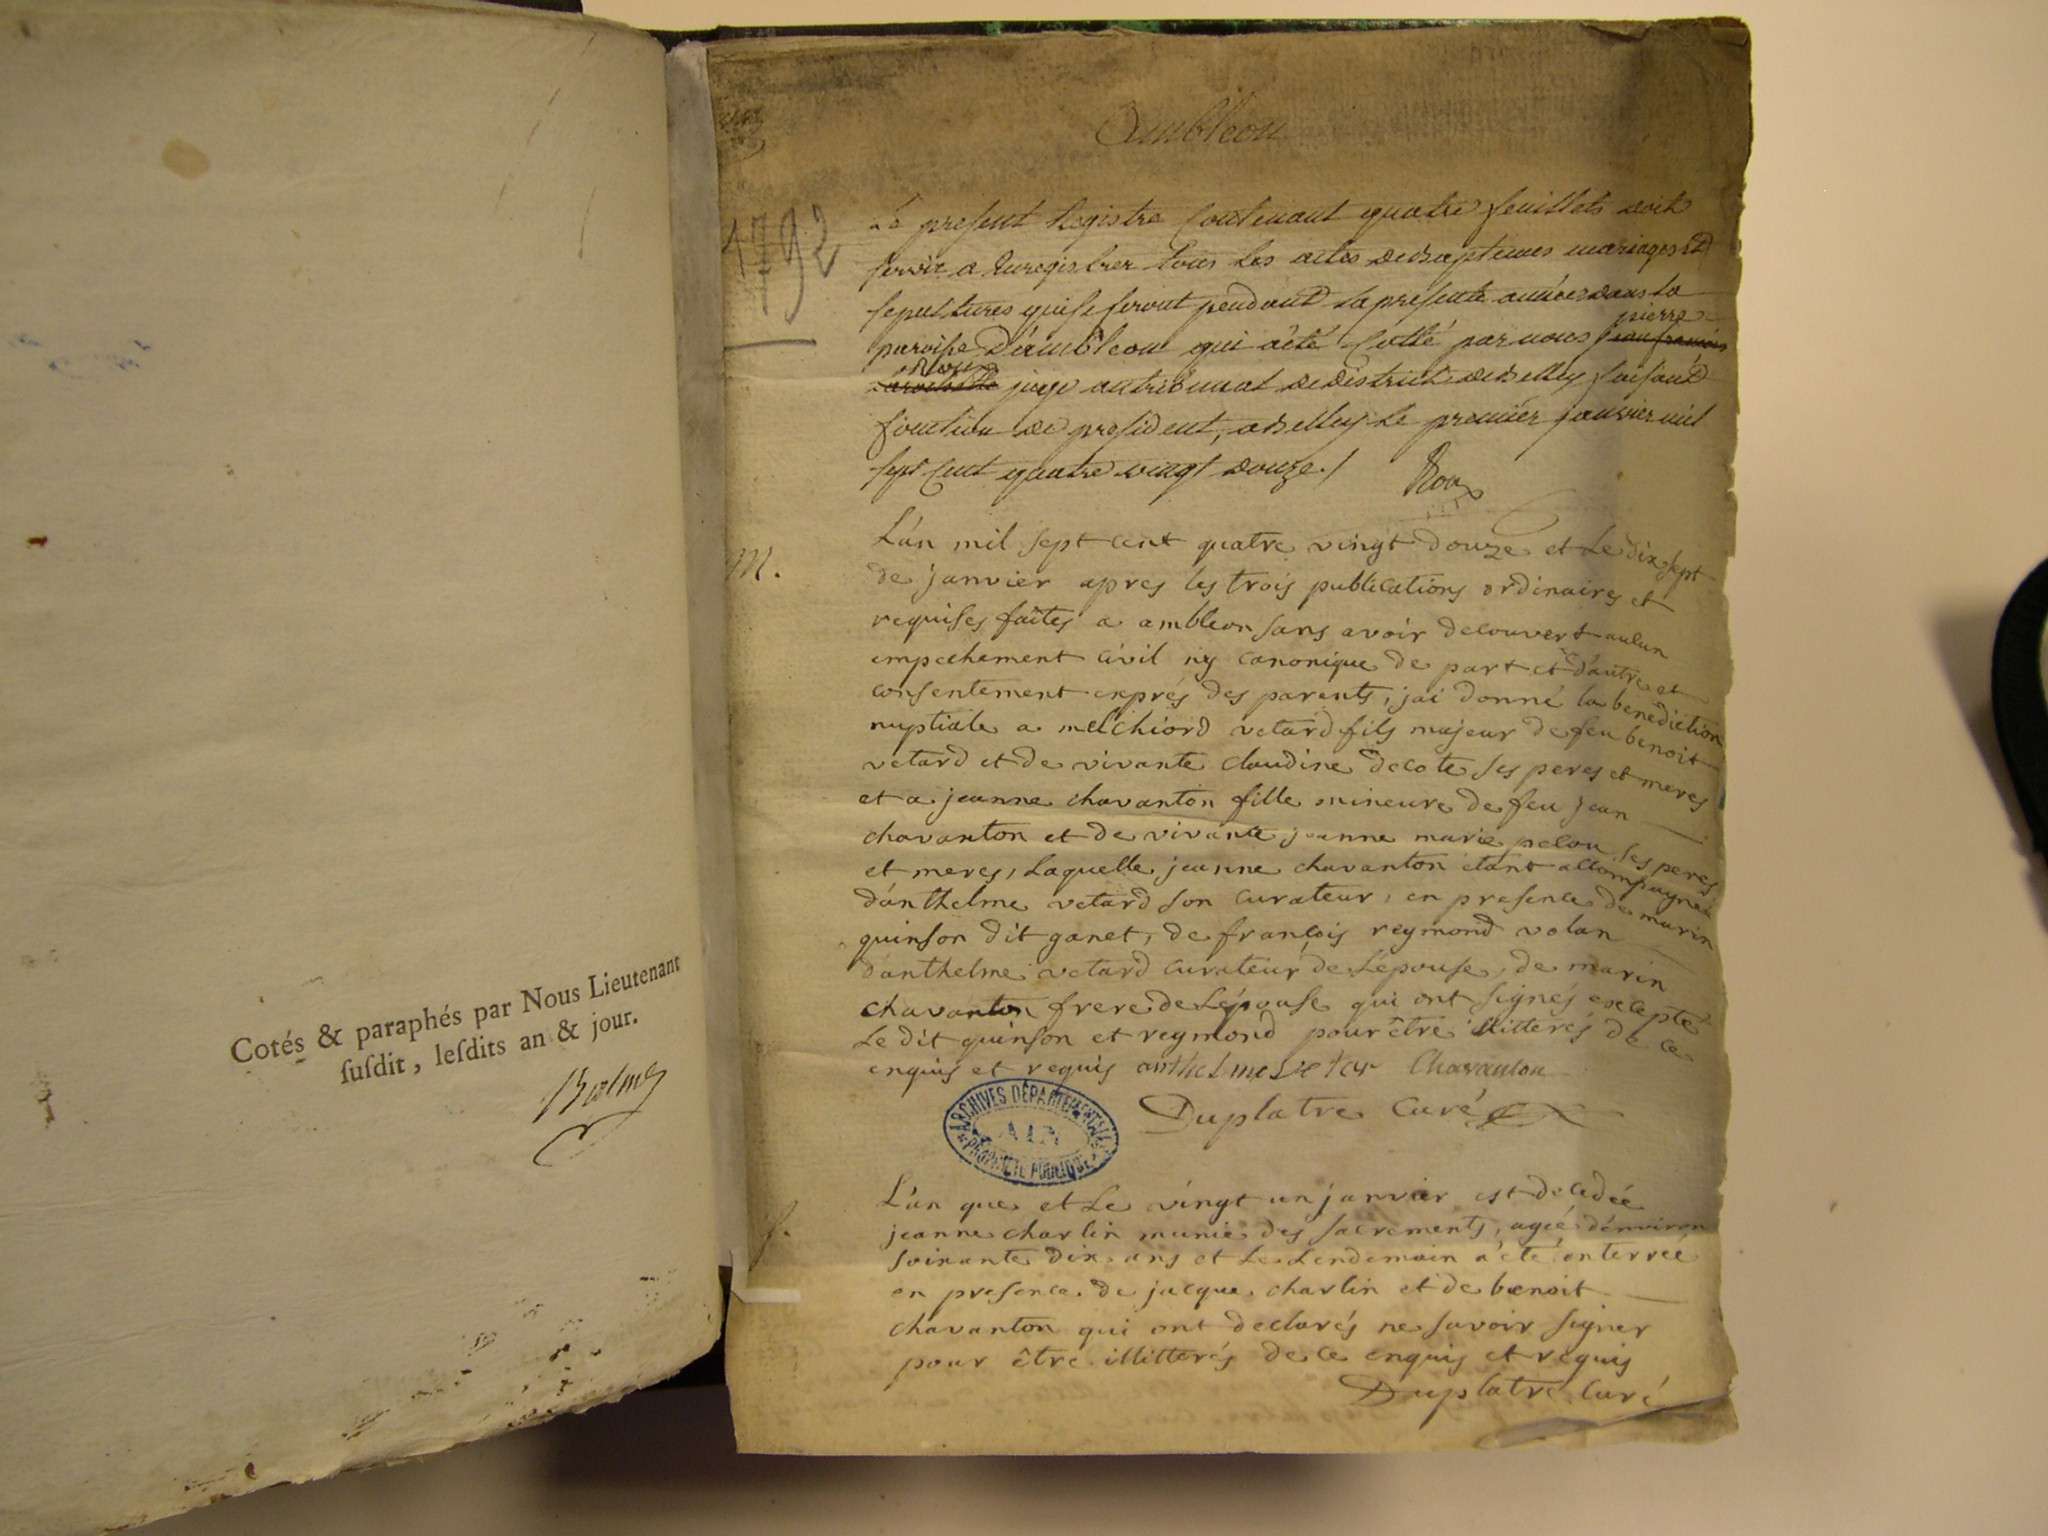 Cotés & paraphés par Nous Lieutenant
suſdit, leſdits an & jour.
Ambléon
1792
Le preſent Regiſtre Contenant quatre feuillets doit
ſervir a Enregiſtrer tous les actes de Baptemes mariages et
ſepultures qui ſe feront pendant la preſente année dans la
pierre
paroiſse D'ambléon qui a été Cotté par nous jean francois
Roux
juge au tribunal de diſtrict de Belley faiſant
fonction de preſident, a Belley le premier janvier mil
ſept Cent quatre vingt douze./ Roux
M.
L'an mil sept cent quatre vingt douze et Le dix sept
de janvier apres les trois publications ordinaires et
requiſes faites a ambleon sans avoir decouvert aucun
empechement civil ny canonique de part et d'autre et
conſentement exprés des parents, jai donné la benediction
nuptiale a melchiord vetard fils majeur de feu benoit
vetard et de vivante claudine decote ses peres et meres
et a jeanne chavanton fille mineure de feu jean
chavanton et de vivante jeanne marie pelou ses peres
et meres, Laquelle jeanne chavanton etant accompagnée
d'anthelme vetard son curateur, en preſence de marin
quinson dit ganet, de francois reymond volan
d'anthelme vetard curateur de Lepouſe, de marin
chavanton frere de Lépouſe qui ont signés excepté
Le dit quinson et reymond pour être illitterés de ce
enquis et requis anthelme vetar Chavanton
Duplatre Curé
ARCHIVES DÉPARTEMENTALES
AIN
PROPRIÉTÉ PUBLIQUE
S.
L'an que et Le vingt un janvier est decedée
jeanne charlin munie des sacrements, agée d'environ
soixante dix ans et Le Lendemain a été enterrée
en preſence de jacque charlin et de benoit
chavanton qui ont declarés ne savoir signer
pour être illitterés de ce enquis et requis
Duplatre Curé